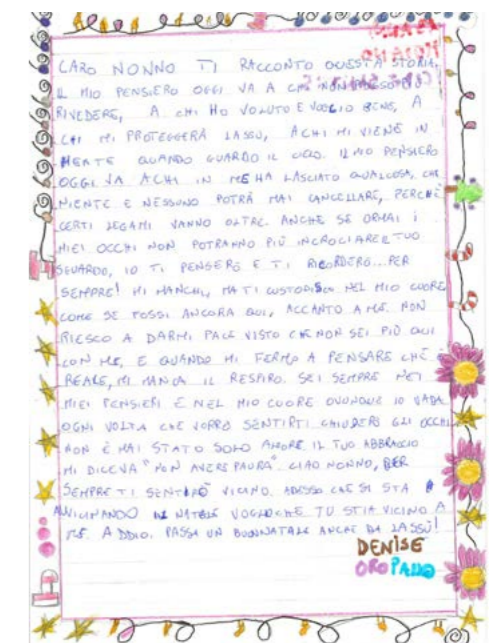 CARO NONNO TI RACCONTO QUESTA STORIA.
IL MIO PENSIERO OGGI VA A CHI NON POSSO PIÙ
RIVEDERE, A CHI HO VOLUTO E VOGLIO BENE, A
CHI MI PROTEGGERÀ LASSÙ, A CHI MI VIENE IN
MENTE QUANDO GUARDO IL CIELO. IL MIO PENSIERO
OGGI VA A CHI IN ME HA LASCIATO QUALCOSA, CHE
NIENTE E NESSUNO POTRÀ MAI CANCELLARE, PERCHÈ
CERTI LEGAMI VANNO OLTRE. ANCHE SE ORMAI I
MIEI OCCHI NON POTRANNO PIÙ INCROCIARE IL TUO
SGUARDO, IO TI PENSERÒ E TI RICORDERÒ... PER
SEMPRE! MI MANCHI, MA TI CUSTODISCO NEL MIO CUORE
COME SE FOSSI ANCORA QUI, ACCANTO A ME. NON
RIESCO A DARMI PACE VISTO CHE NON SEI PIÙ QUI
CON ME, E QUANDO MI FERMO A PENSARE CHE È
REALE, MI MANCA IL RESPIRO. SEI SEMPRE NEI
MIEI PENSIERI E NEL MIO CUORE OVUNQUE IO VADA
OGNI VOLTA CHE VORRÒ SENTIRTI CHIUDERÒ GLI OCCHI
NON È MAI STATO SOLO AMORE IL TUO ABBRACCIO
MI DICEVA "NON AVERE PAURA". CIAO NONNO, PER
SEMPRE TI SENTIRÒ VICINO. ADESSO CHE SI STA
AVVICINANDO NATALE VOGLIO CHE TU STIA VICINO A
ME. ADDIO. PASSA UN BUON NATALE ANCHE DA LASSÙ!
DENISE
OROPALLO